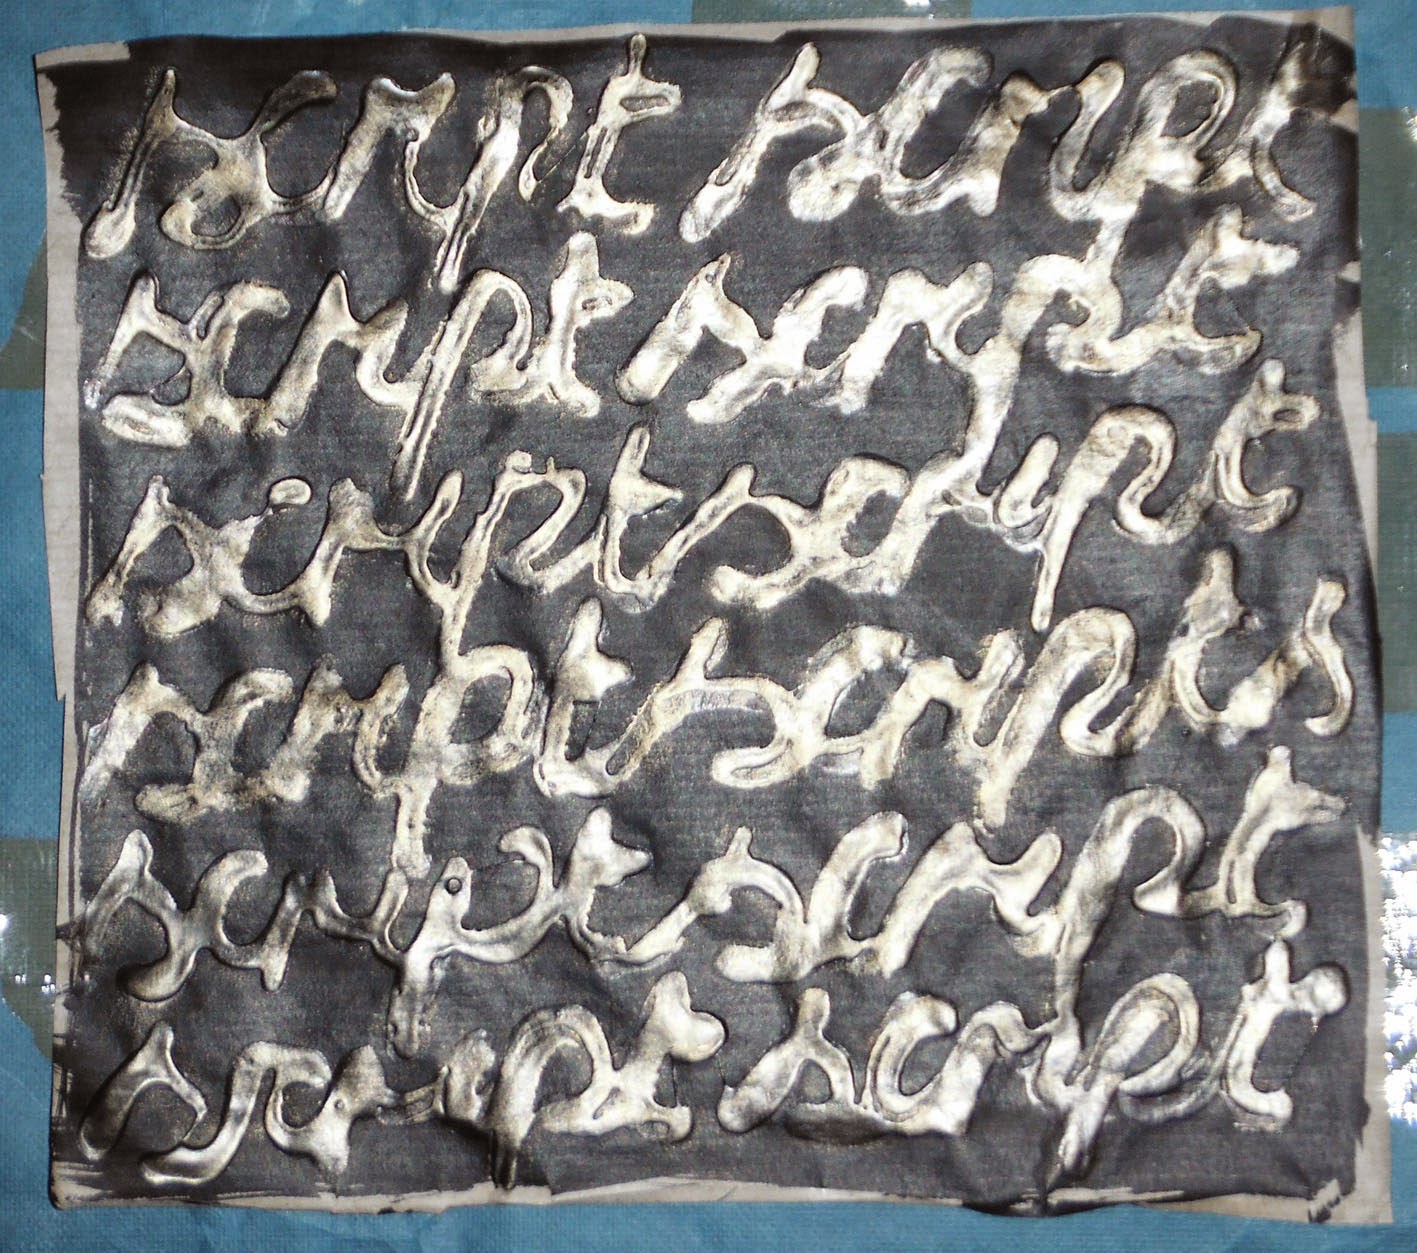 script script
script script
script script
script scripts
script script
script script